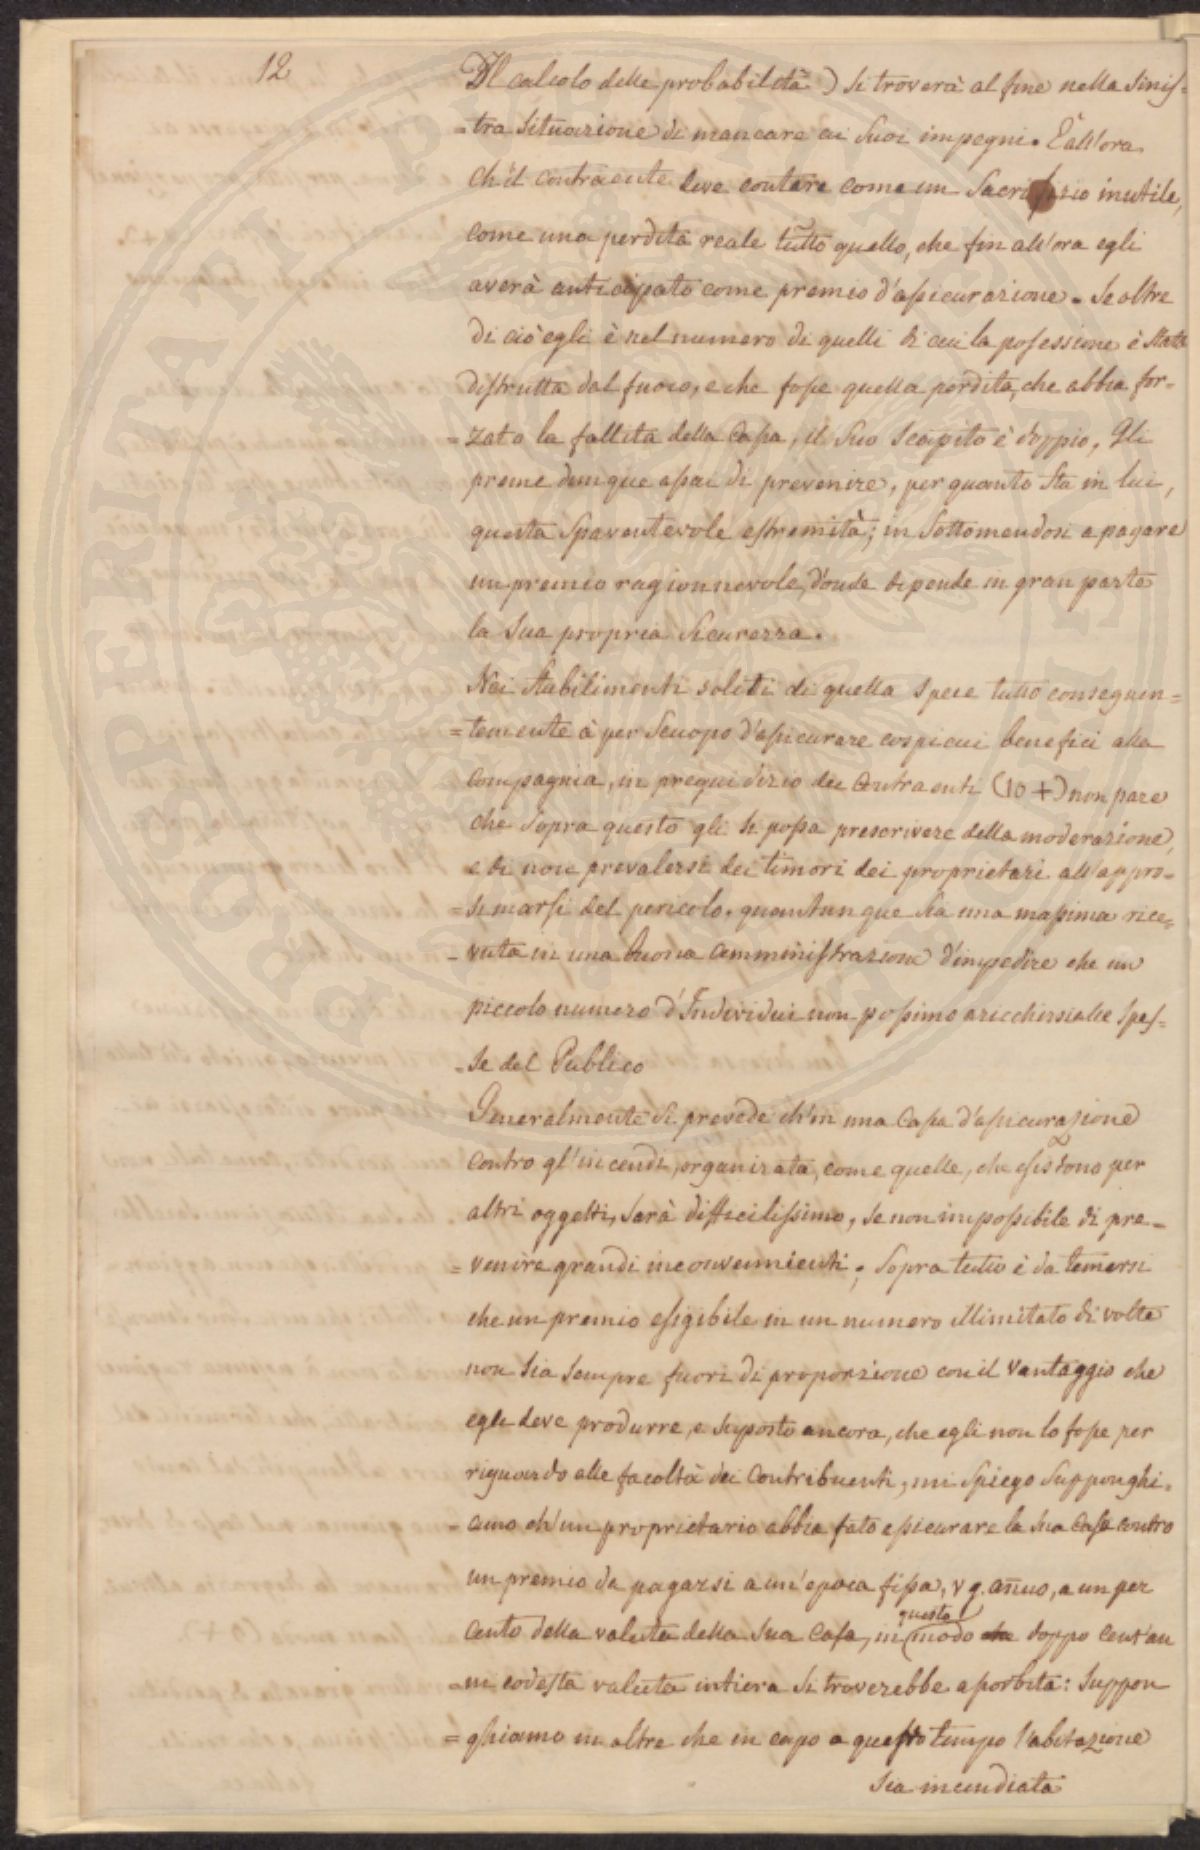 12
Il calcolo delle probabilità) si troverà al fine nella sinis-
-tra situazione di mancare ai suoi impegni. È all'ora
ch'il contraente deve contare come un sacrifizio inutile,
come una perdita reale tutto quello, che fin all'ora egli
averà anticipato come premio d'assicurazione. Se oltre
di ciò egli è nel numero di quelli di cui la possessione è stata
distrutta dal fuoco, e che fosse quella perdita, che abbia for-
=zato la fallita della Casa, il suo scapito è doppio, Gli
preme dunque assai di prevenire, per quanto sta in lui,
questa spaventevole estremità; in sottomendosi a pagare
un premio ragionnevole, d'onde dipende in gran parte
la sua propria sicurezza.
Nei stabilimenti soliti di quella specie tutto conseguen=
=temente à per scuopo d'assicurare cospicui benefici alla
compagnia, in pregiudizio dei Contraenti (10 +) non pare
che sopra questo gli si possa prescrivere della moderazione,
e di non prevalersi dei timori dei proprietari all'appros-
=simarsi del pericolo. quantunque sia una massima rice=
-vuta in una buona amministrazione d'impedire che un
piccolo numero d'Individui non possino aricchirsi alle spes-
-se del Publico
Generalmente si prevede ch'in una Casa d'assicurazione
contro gl'incendi, organizata, come quelle, che esistono per
altri oggetti, sarà difficilissimo, se non impossibile di pre=
=venire grandi inconvennienti; sopra tutto è da temersi
che un premio esigibile in un numero illimitato di volte
non sia sempre fuori di proporzione con il vantaggio che
egli deve produrre, e suposto ancora, che egli non lo fosse per
riguardo alle facoltà dei Contribuenti, mi spiego supponghi=
=amo ch'un proprietario abbia fato assicurare la sua casa contro
un premio da pagarsi a un'epoca fissa, v g. añuo, a un per
questo
cento della valuta della sua Casa, in modo che doppo cent'an
=ni codesta valuta intiera si troverebbe assorbita: suppon
=ghiamo in altre che in capo a questo tempo l'abitazione
sia incendiata